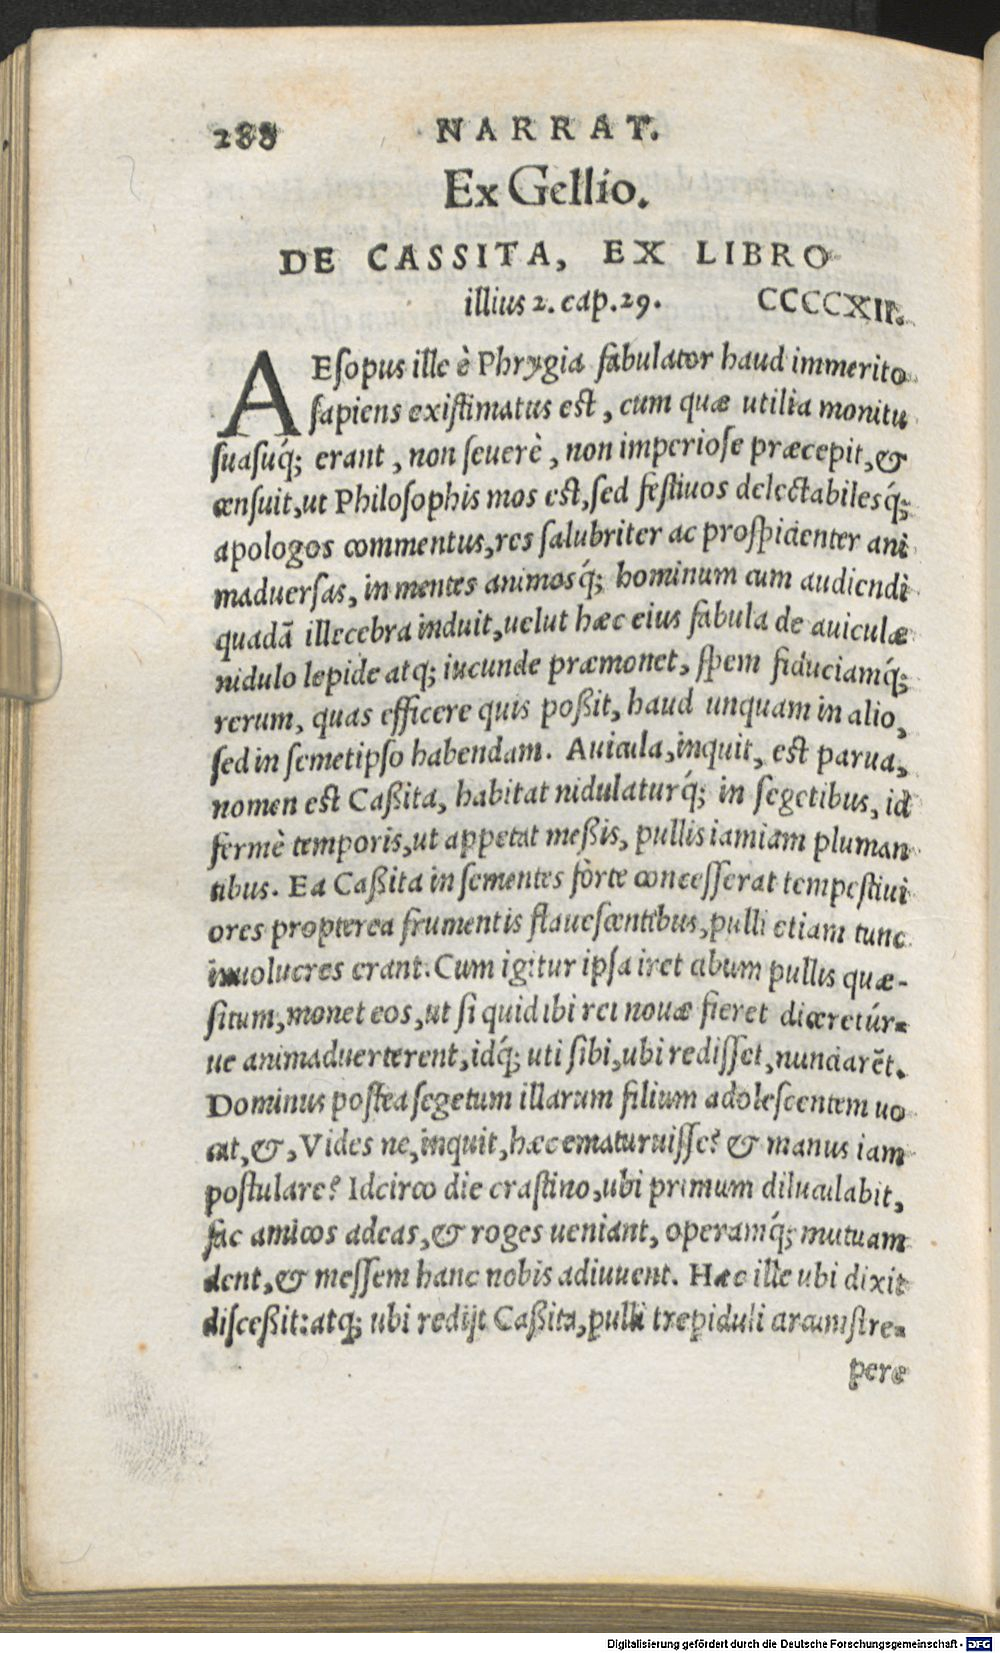 288 NARRAT.
Ex Gellio.
DE CASSITA, EX LIBRO
illius 2. cap. 29. CCCCXII.
AEſopus ille è Phrygia fabulator haud immerito
ſapiens exiſtimatus eſt, cum quæ utilia monitu
ſuaſuq́; erant, non ſeuerè, non imperioſe præcepit, &
cenſuit, ut Philoſophis mos eſt, ſed feſtiuos delectabilesq́;
apologos commentus, res ſalubriter ac proſpicienter ani
maduerſas, in mentes animosq́; hominum cum audiendi
quadã illecebra induit, uelut hæc eius fabula de auiculæ
nidulo lepide atq; iucunde præmonet, ſpem fiduciamq́;
rerum, quas efficere quis poßit, haud unquam in alio,
ſed in ſemetipſo habendam. Auicula, inquit, eſt parua,
nomen eſt Caßita, habitat nidulaturq́; in ſegetibus, id
fermè temporis, ut appetat meßis, pullis iamiam pluman
tibus. Ea Caßita in ſementes fòrte conceſſerat tempeſtiui
ores propterea frumentis flaueſcentibus, pulli etiam tunc
inuolucres erant. Cum igitur ipſa iret cibum pullis quæ-
ſitum, monet eos, ut ſi quid ibi rei nouæ fieret diceretúr-
ue animaduerterent, idq́; uti ſibi, ubi rediſſet, nunciarẽt.
Dominus poſtea ſegetum illarum filium adoleſcentem uo
cat, &, Vides ne, inquit, hæc ematuruiſſe? & manus iam
poſtulare? Idcirco die craſtino, ubi primum diluculabit,
fac amicos adeas, & roges ueniant, operamq́; mutuam
dent, & meſſem hanc nobis adiuuent. Hæc ille ubi dixit
diſceßit: atq; ubi redijt Caßita, pulli trepiduli circumſtre-
pere
Digitalisierung gefördert durch die Deutsche Forschungsgemeinschaft - DFG